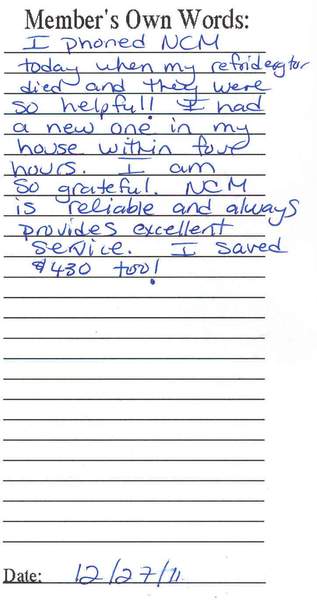 Member's Own Words:
I phoned NCM
today when my refridergtor
died and they were
so helpful! I had
a new one in my
house within four
hours. I am
so grateful. NCM
is reliable and always
provides excellent
service. I saved
$430 too!
Date: 12/27/11